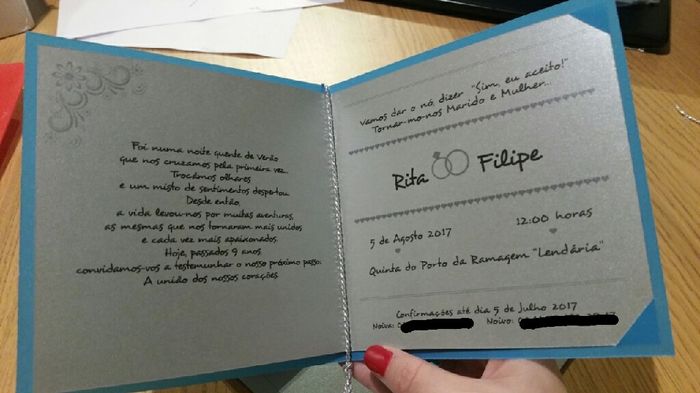 Foi numa noite quente de Verão
que nos cruzamos pela primeira vez.
Trocámos olhares
e um misto de sentimentos despertou.
Desde então,
a vida levou-nos por muitas aventuras,
as mesmas que nos tornaram mais unidos
e cada vez mais apaixonados.
Hoje, passados 9 anos
convidamos-vos a testemunhar o nosso próximo passo:
A união dos nossos corações.
Vamos dar o nó, dizer "Sim, eu aceito!"
Tornar-mo-nos Marido e Mulher...
Rita Filipe
5 de Agosto 2017 12:00 horas
Quinta do Porto da Ramagem "Lendária"
Confirmações até dia 5 de Julho 2017
Noiva: Noivo: